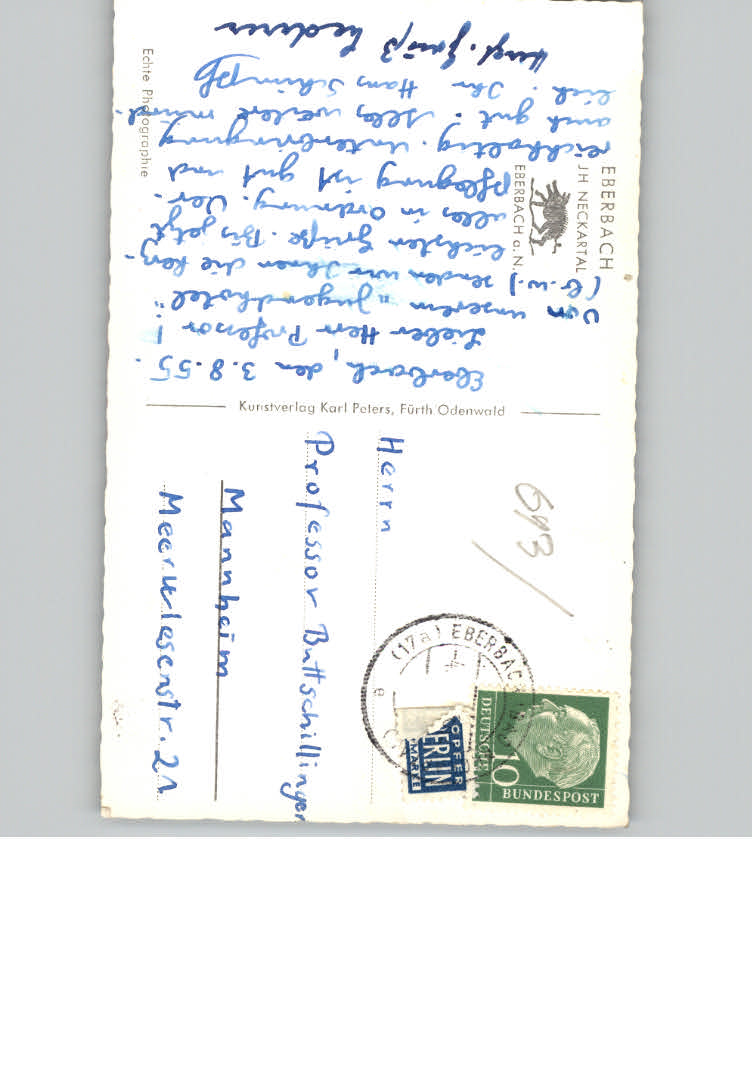 EBERBACH
JH NECKARTAL
EBERBACH a. N.
Eberbach, den 3.8.55.
Lieber Herr Professor!
Von unserem „Jugendhotel"
(b.w.) senden wir Ihnen die herz-
lichsten Grüße. Bis jetzt
alles in Ordnung. Ver-
pflegung ist gut und
reichhaltig. Unterbringung
auch gut. Alles weitere münd-
lich. Ihr Hans Schimpf
Gruß Lederer
Echte Photographie
Kunstverlag Karl Peters, Fürth Odenwald
Herrn
Professor Buttschillinger
Mannheim
Meerwiesenstr. 21
693
(17a) EBERBACH
a
NOTOPFER
BERLIN
STEUERMARKE
DEUTSCHE
BUNDESPOST
10